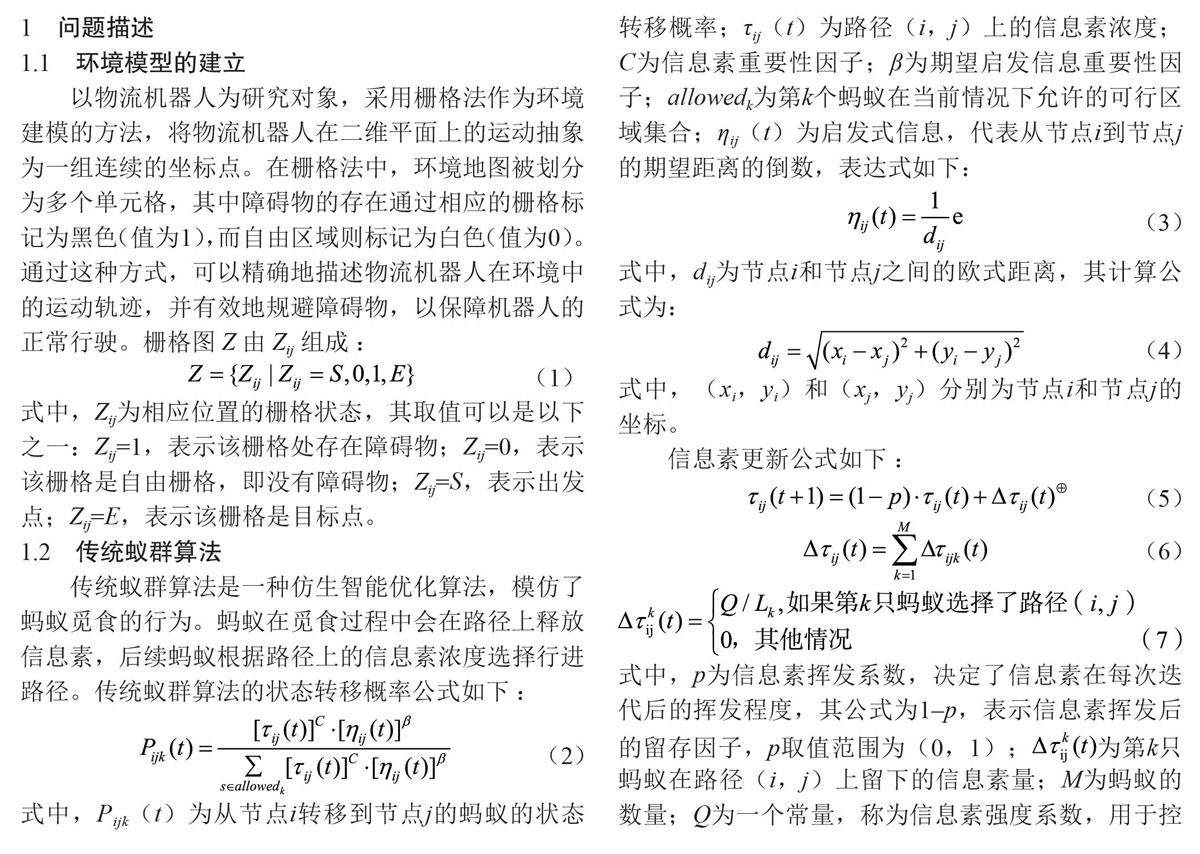 1 问题描述
1.1 环境模型的建立
以物流机器人为研究对象，采用栅格法作为环境
建模的方法，将物流机器人在二维平面上的运动抽象
为一组连续的坐标点。在栅格法中，环境地图被划分
为多个单元格，其中障碍物的存在通过相应的栅格标
记为黑色（值为1），而自由区域则标记为白色（值为0）。
通过这种方式，可以精确地描述物流机器人在环境中
的运动轨迹，并有效地规避障碍物，以保障机器人的
正常行驶。栅格图 Z 由 Z_{ij} 组成：
Z = {Z_{ij} | Z_{ij} = S,0,1,E} （1）
式中，Z_{ij}为相应位置的栅格状态，其取值可以是以下
之一：Z_{ij}=1，表示该栅格处存在障碍物；Z_{ij}=0，表示
该栅格是自由栅格，即没有障碍物；Z_{ij}=S，表示出发
点；Z_{ij}=E，表示该栅格是目标点。
1.2 传统蚁群算法
传统蚁群算法是一种仿生智能优化算法，模仿了
蚂蚁觅食的行为。蚂蚁在觅食过程中会在路径上释放
信息素，后续蚂蚁根据路径上的信息素浓度选择行进
路径。传统蚁群算法的状态转移概率公式如下：
P_{ijk}(t) = \frac{[τ_{ij}(t)]^C·[η_{ij}(t)]^β}{\sum_{s∈allowed_k}[τ_{ij}(t)]^C·[η_{ij}(t)]^β} （2）
式中，P_{ijk}（t）为从节点i转移到节点j的蚂蚁的状态
转移概率；τ_{ij}（t）为路径（i，j）上的信息素浓度；
C为信息素重要性因子；β为期望启发信息重要性因
子；allowed_k为第k个蚂蚁在当前情况下允许的可行区
域集合；η_{ij}（t）为启发式信息，代表从节点i到节点j
的期望距离的倒数，表达式如下：
η_{ij}(t) = \frac{1}{d_{ij}} e （3）
式中，d_{ij}为节点i和节点j之间的欧式距离，其计算公
式为：
d_{ij} = \sqrt{(x_i − x_j)^2 + (y_i − y_j)^2} （4）
式中，（x_i，y_i）和（x_j，y_j）分别为节点i和节点j的
坐标。
信息素更新公式如下：
τ_{ij}(t+1) = (1−p)·τ_{ij}(t) + Δτ_{ij}(t)^⊕ （5）
Δτ_{ij}(t) = \sum_{k=1}^{M} Δτ_{ijk}(t) （6）
Δτ_{ij}^k(t) = { Q / L_k,如果第k只蚂蚁选择了路径（i, j）
0，其他情况 （7）
式中，p为信息素挥发系数，决定了信息素在每次迭
代后的挥发程度，其公式为1–p，表示信息素挥发后
的留存因子，p取值范围为（0，1）；Δτ_{ij}^k(t)为第k只
蚂蚁在路径（i，j）上留下的信息素量；M为蚂蚁的
数量；Q为一个常量，称为信息素强度系数，用于控